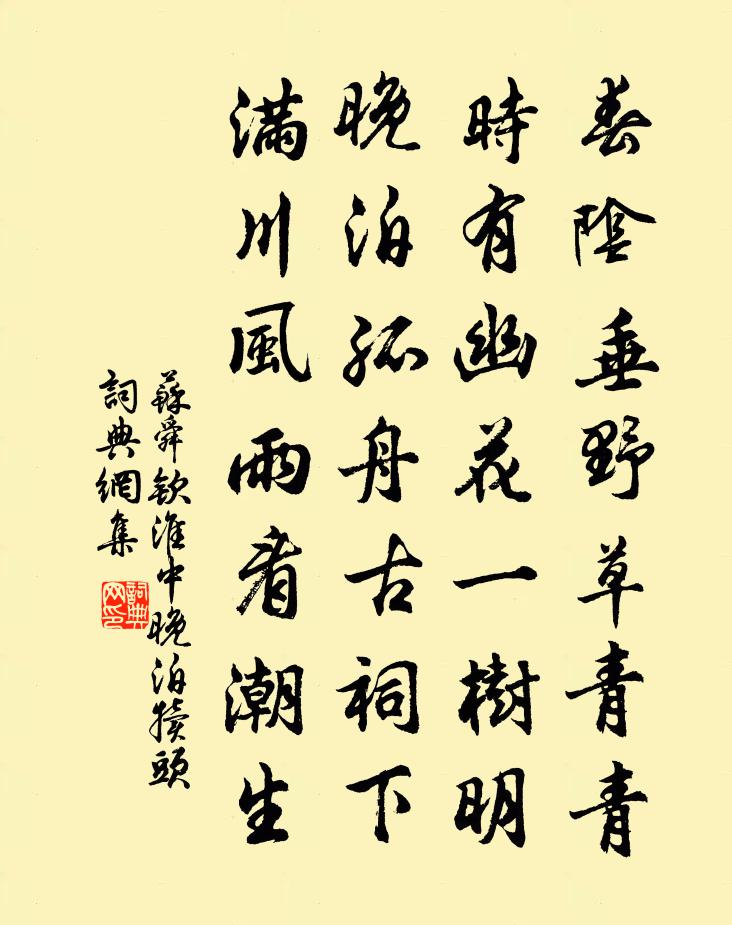 春陰垂野草青青
時有幽花一樹明
晚泊孤舟古祠下
滿川風雨看潮生
蘇舜欽淮中晚泊犢頭
詞典網集
詞典
网印